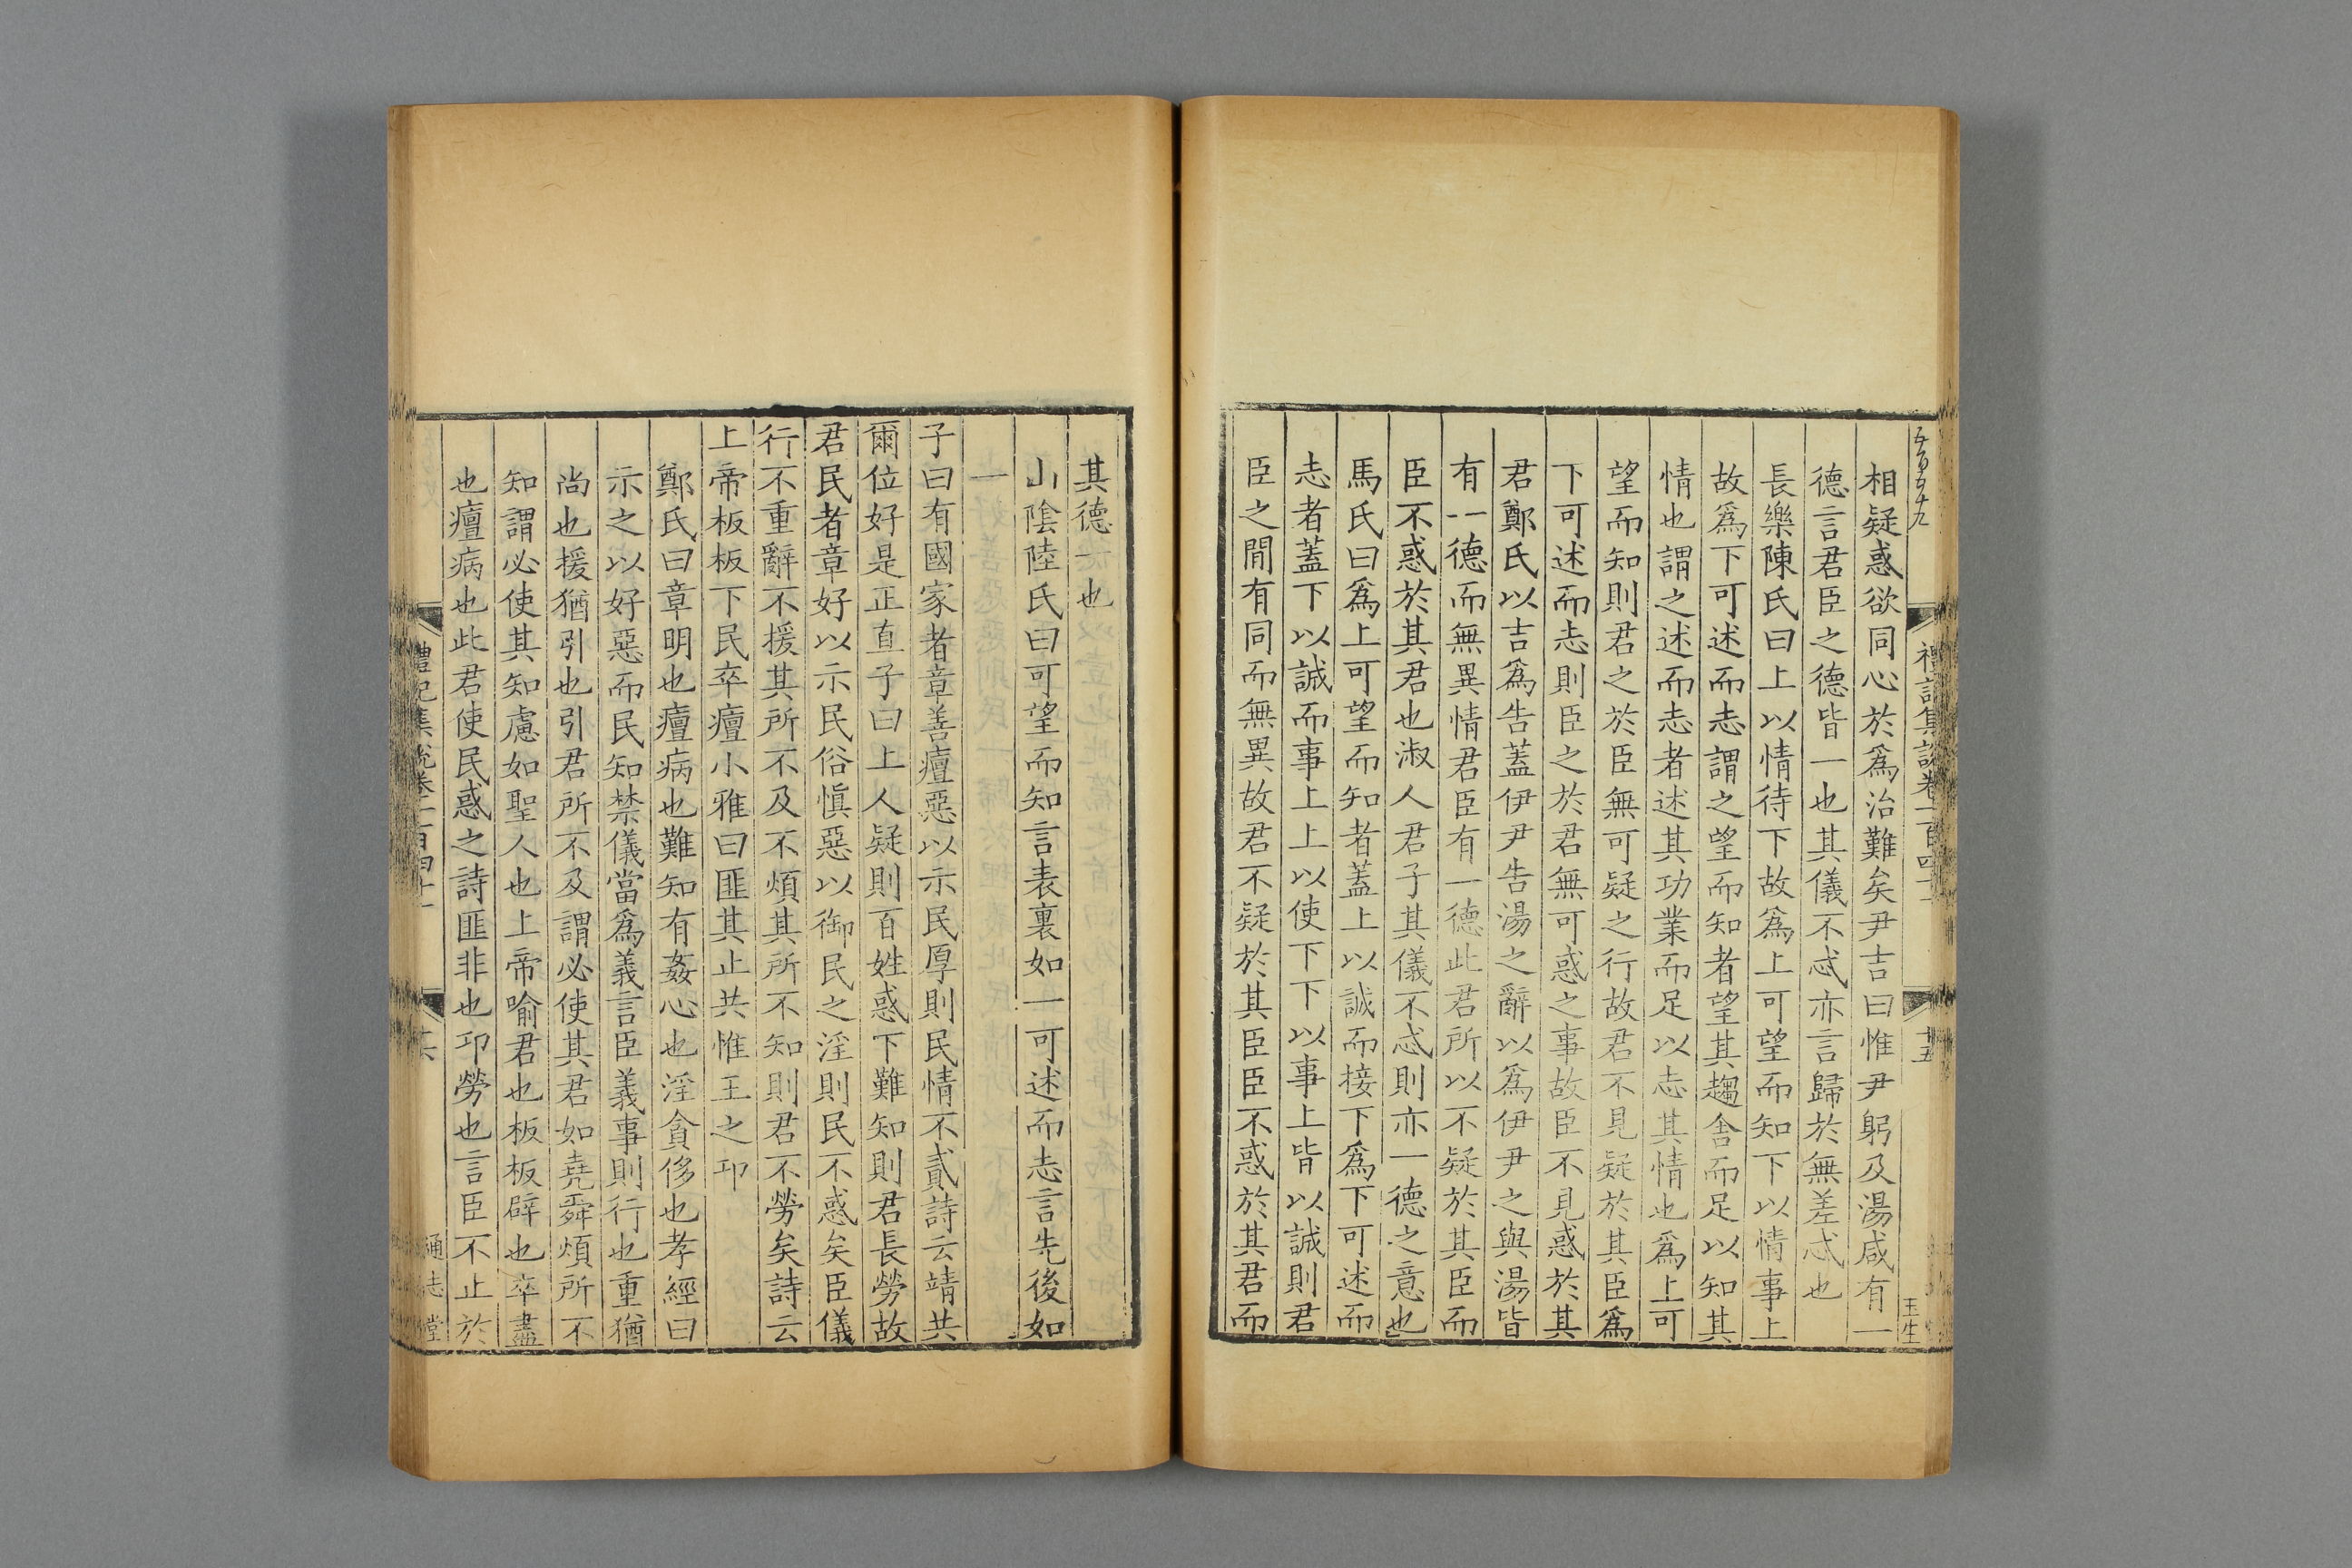 禮記集說卷一百四十一
十五
王生
相疑惑欲同心於爲治難矣尹吉曰惟尹躬及湯咸有一
德言君臣之德皆一也其儀不忒亦言歸於無差忒也
長樂陳氏曰上以情待下故爲上可望而知下以情事上
故爲下可述而志謂之望而知者望其趨舍而足以知其
情也謂之述而志者述其功業而足以志其情也爲上可
望而知則君之於臣無可疑之行故君不見疑於其臣爲
下可述而志則臣之於君無可惑之事故臣不見惑於其
君鄭氏以吉爲告蓋伊尹告湯之辭以爲伊尹之與湯皆
有一德而無異情君臣有一德此君所以不疑於其臣而
臣不惑於其君也淑人君子其儀不忒則亦一德之意也
馬氏曰爲上可望而知者蓋上以誠而接下爲下可述而
志者蓋下以誠而事上上以使下下以事上皆以誠則君
臣之閒有同而無異故君不疑於其臣臣不惑於其君而
其德一也
山陰陸氏曰可望而知言表裏如一可述而志言先後如
一
子曰有國家者章善癉惡以示民厚則民情不貳詩云靖共
爾位好是正直子曰上人疑則百姓惑下難知則君長勞故
君民者章好以示民俗愼惡以御民之淫則民不惑矣臣儀
行不重辭不援其所不及不煩其所不知則君不勞矣詩云
上帝板板下民卒癉小雅曰匪其止共惟王之卭
鄭氏曰章明也癉病也難知有姦心也淫貪侈也孝經曰
示之以好惡而民知禁儀當爲義言臣義事則行也重猶
尚也援猶引也引君所不及謂必使其君如堯舜煩所不
知謂必使其知慮如聖人也上帝喻君也板板辟也卒盡
也癉病也此君使民惑之詩匪非也卭勞也言臣不止於
禮記集說卷一百四十一
十六
通志堂